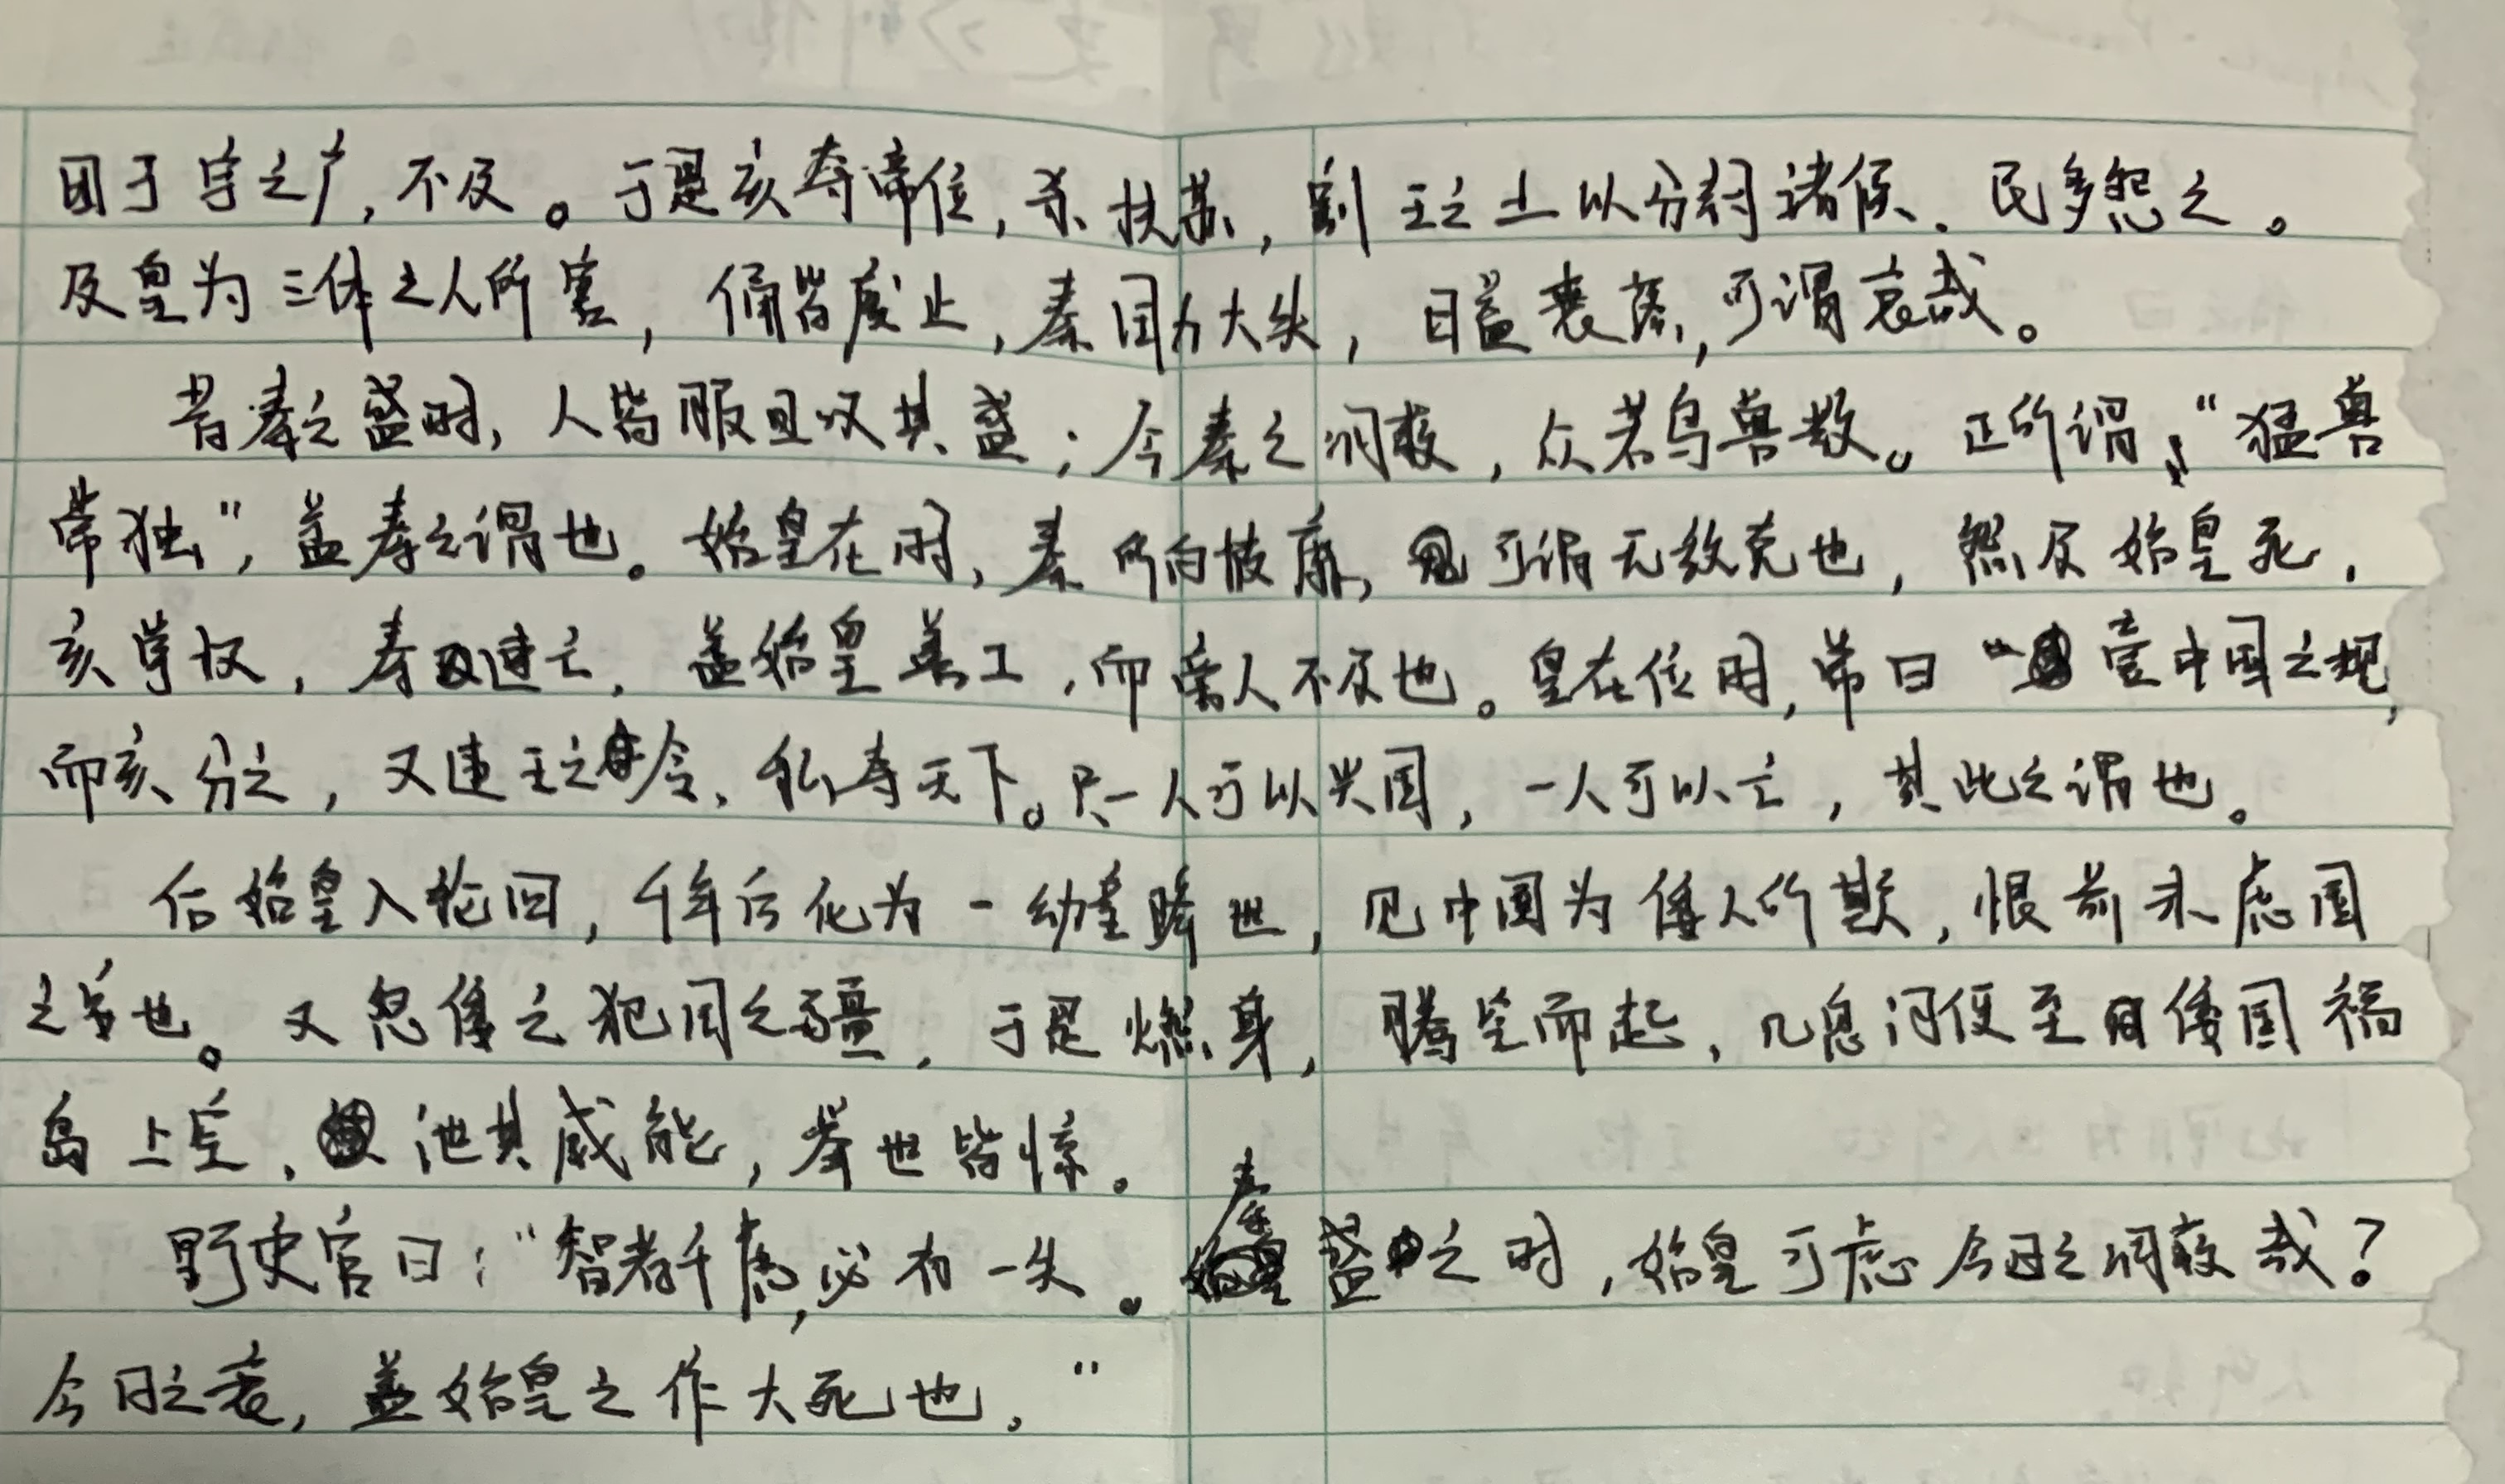 困于字之广，不及。于是亥夺帝位，杀扶苏，割王之土以分封诸侯，民多怨之。
及皇为三体之人所害，俑皆废止，秦国力大失，日益衰落，可谓哀哉。
昔秦之盛时，人皆服且叹其盛；今秦之凋敝，众若鸟兽散。正所谓，“猛兽
常独”，盖秦之谓也。始皇在时，秦所向披靡，可谓无敌克也，然及始皇死，
亥掌权，秦速亡，盖始皇善工，而旁人不及也。皇在位时，常曰“壹中国之规，
而亥分之，又违王之令，私夺天下。只一人可以兴国，一人可以亡，其此之谓也。
后始皇入轮回，千年后化为一幼童降世，见中国为倭人所欺，恨前未虑国
之害也。又忽倭之犯国之疆，于是燃身，腾空而起，几息间便至倭国福
岛上空，池其威能，举世皆惊。
野史官曰：“智者千虑，必有一失。秦盛之时，始皇可虑今日之凋敝哉？
今日之衰，盖始皇之作大死也。”